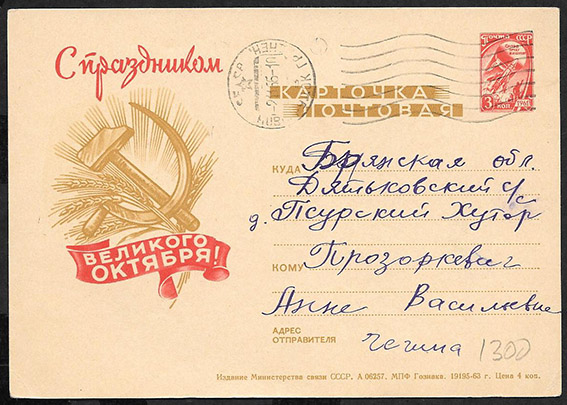 С праздником
ВЕЛИКОГО
ОКТЯБРЯ!
КАРТОЧКА
ПОЧТОВАЯ
ПОЧТА СССР
3
КОП
1961
КУДА
Брянская обл.
Дятьковский с/с
д. Псурский Хутор
КОМУ
Прозоркевич
Анне Васильевне
АДРЕС
ОТПРАВИТЕЛЯ
1300
Издание Министерства связи СССР. А 06257. МПФ Гознака. 19195-63 г. Цена 4 коп.